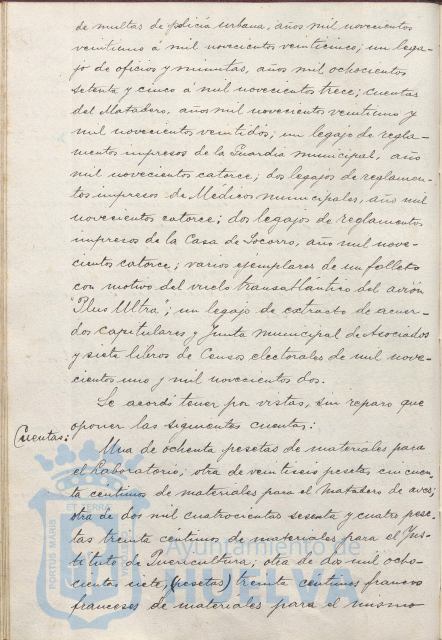 de multas de policía urbana, años mil novecientos
veintiuno á mil novecientos veinticinco; un lega-
jo de oficios y minutas, años mil ochocientos
setenta y cinco á mil novecientos trece; cuentas
del Matadero, años mil novecientos veintiuno y
mil novecientos veintidos; un legajo de regla-
mentos impresos de la Guardia municipal, año
mil novecientos catorce; dos legajos de reglamen-
tos impresos de Médicos municipales, año mil
novecientos catorce; dos legajos de reglamentos
impresos de la Casa de Socorro, año mil nove-
cientos catorce; varios ejemplares de un folleto
con motivo del vuelo transatlántico del avión
"Plus Ultra"; un legajo de extracto de acuer-
dos capitulares y Junta municipal de Asociados
y siete libros de Censos electorales de mil nove-
cientos uno y mil novecientos dos.
Se acordó tener por vistas, sin reparo que
oponer las siguientes cuentas:
Cuentas:
Una de ochenta pesetas de materiales para
el Laboratorio; otra de veintiseis pesetas cincuen-
ta centimos de materiales para el matadero de aves;
otra de dos mil cuatrocientas sesenta y cuatro pese-
tas treinta centimos de materiales para el Ins-
tituto de Puericultura; otra de dos mil ocho-
cientas siete (pesetas) treinta centimos francos
franceses de materiales para el mismo
PORTUS MARIS
ET TERRÆ
Ayuntamiento de
HUELVA